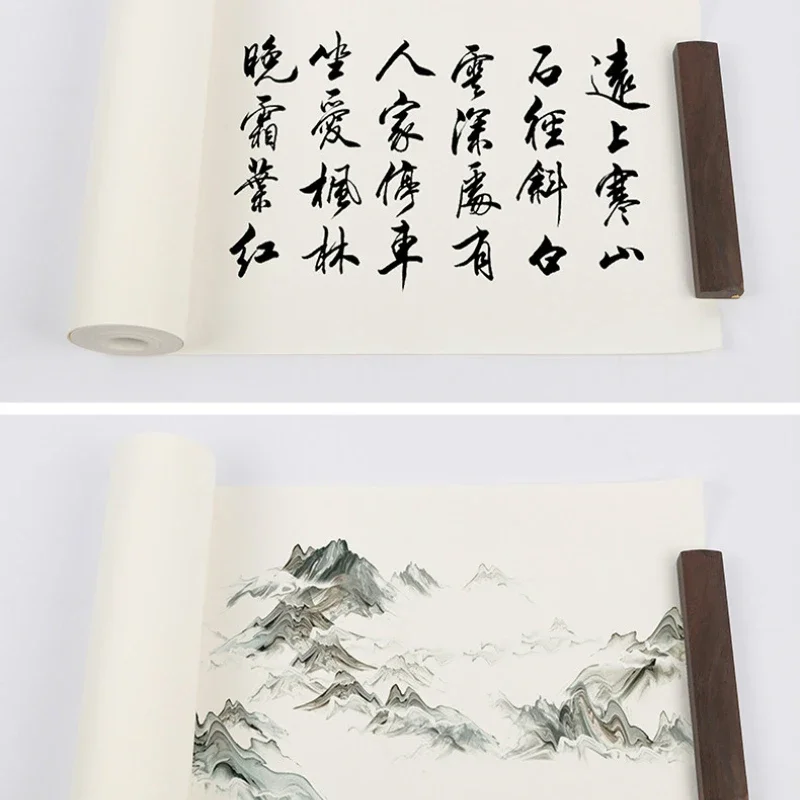 遠上寒山
石徑斜白
雲深處有
人家停車
坐愛楓林
晚霜葉红